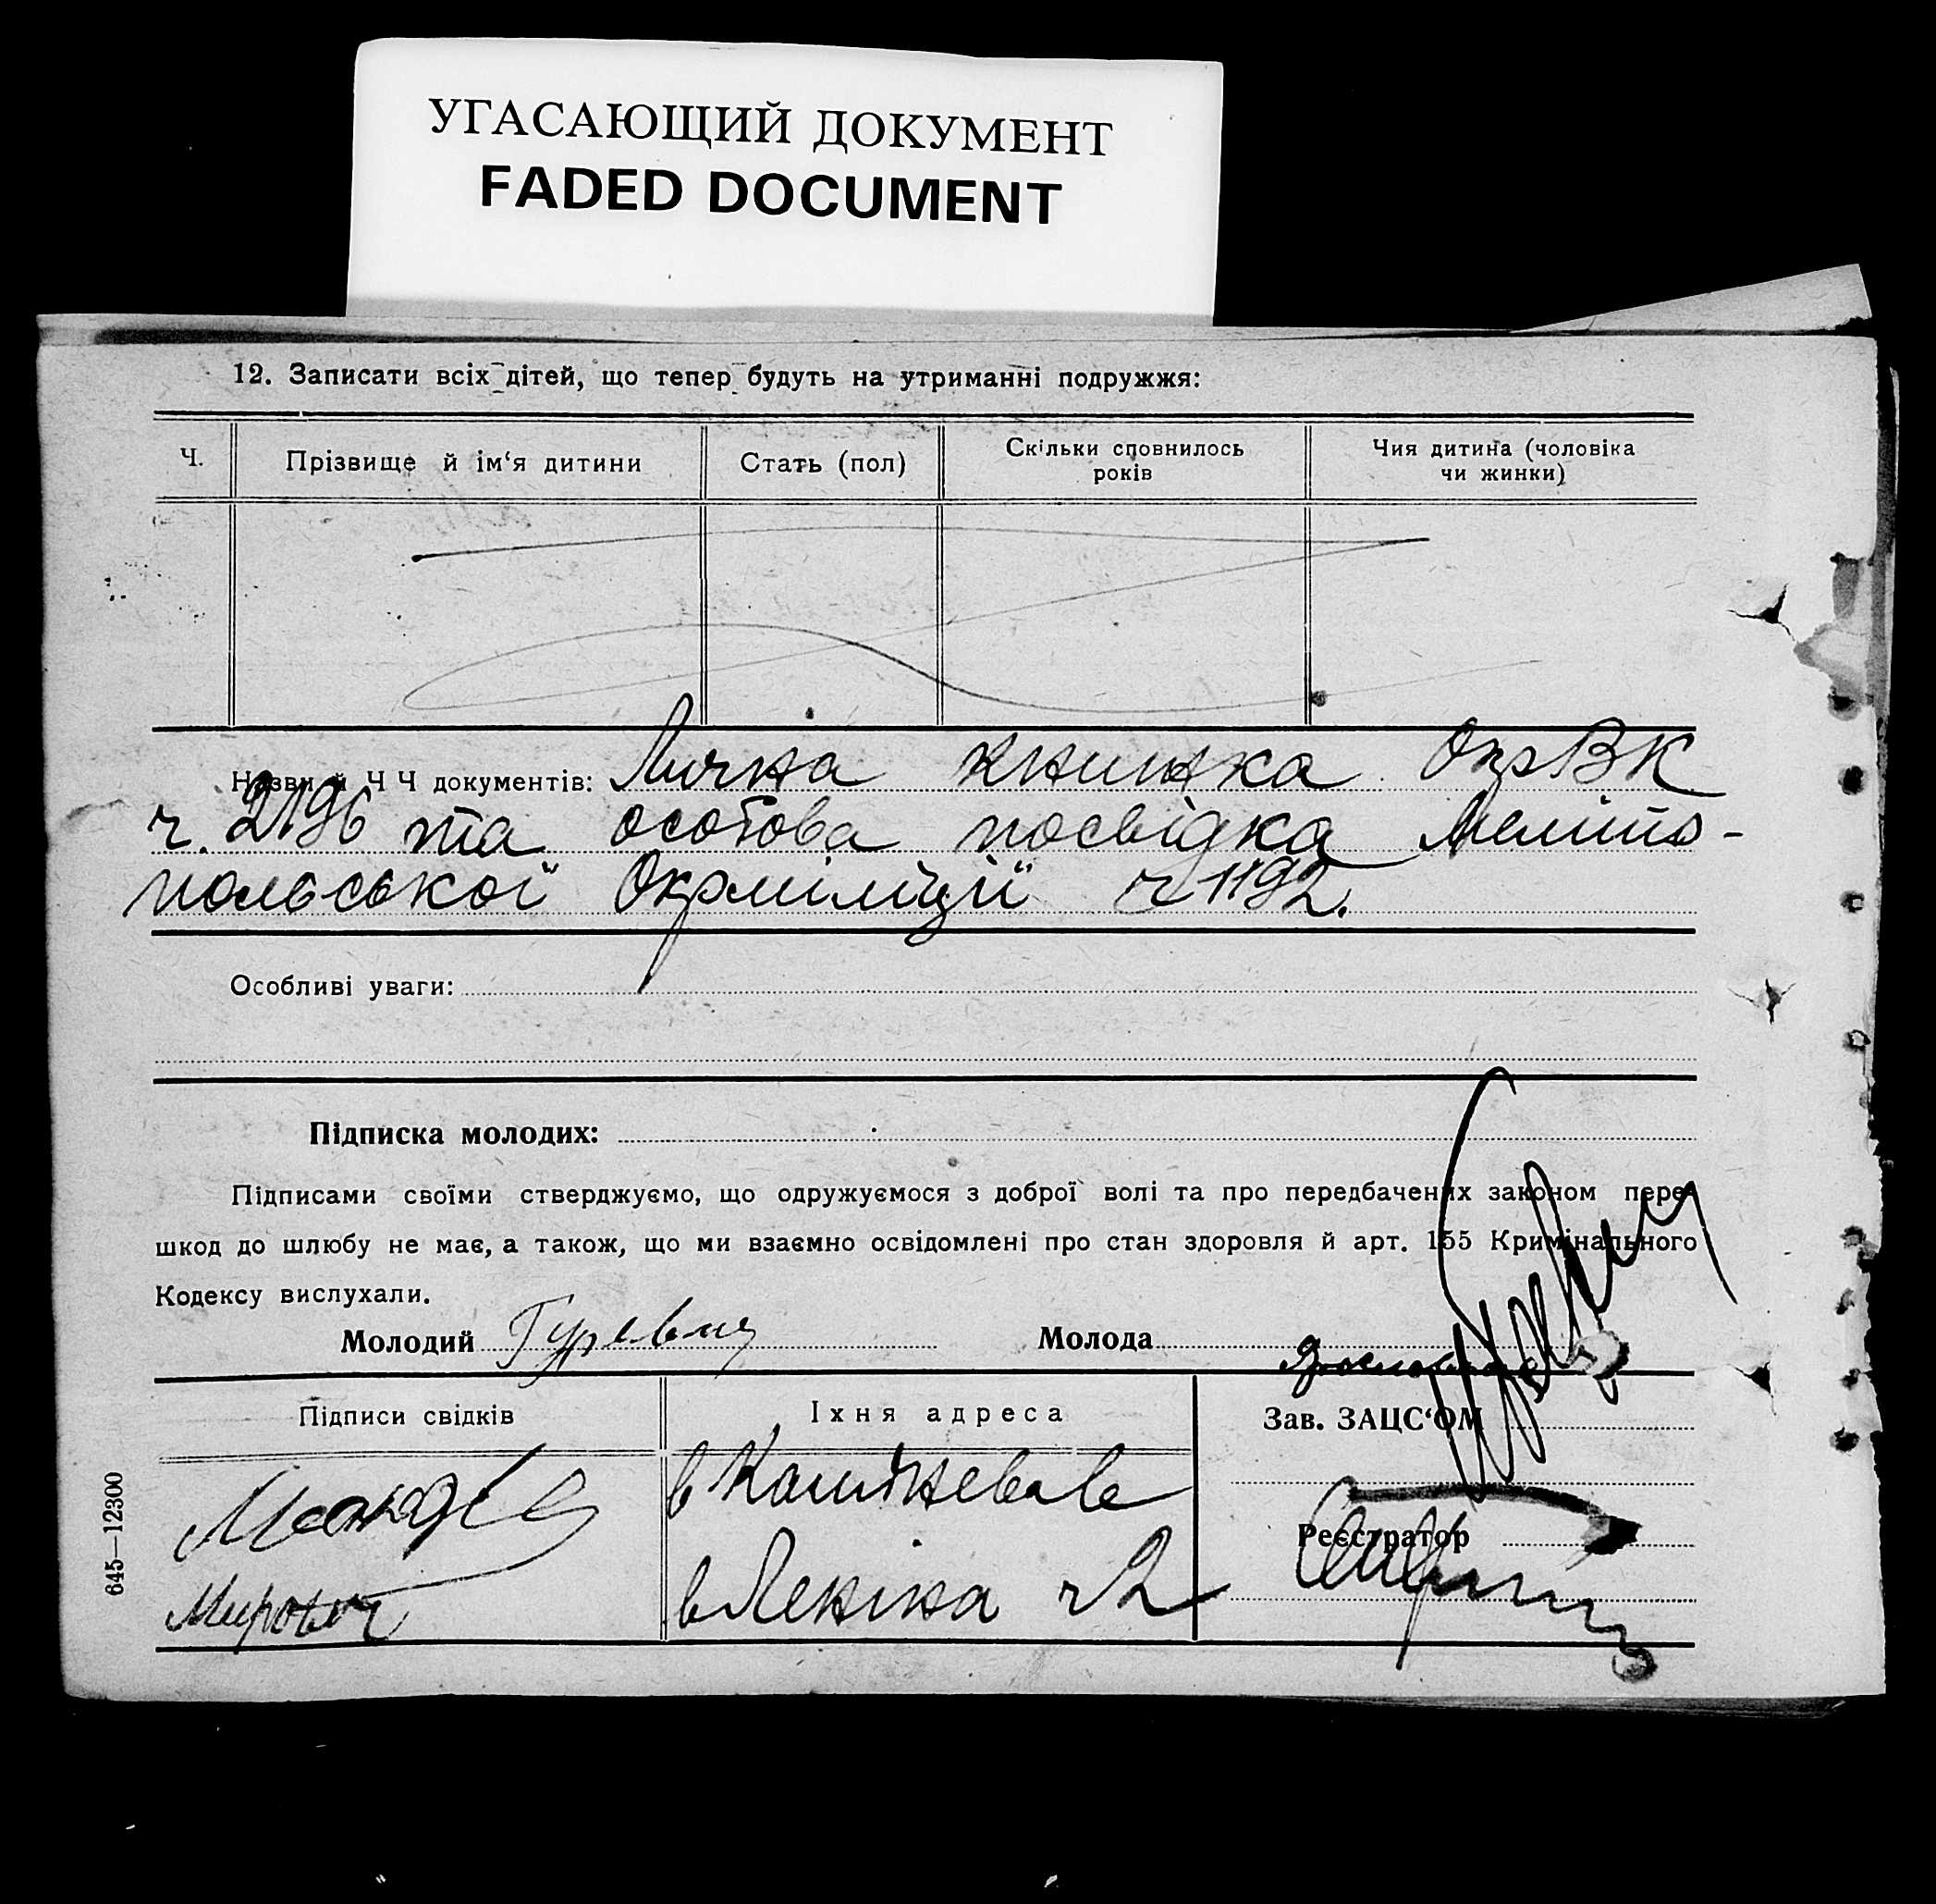 УГАСАЮЩИЙ ДОКУМЕНТ
FADED DOCUMENT
12. Записати всіх дітей, що тепер будуть на утриманні подружжя:
Ч.
Прізвище й ім‘я дитини
Стать (пол)
Скільки сповнилось
років
Чия дитина (чоловіка
чи жинки)
Назви й Ч Ч документів: Лічна книжка ОкрВК
ч. 2196 та особова посвідка Меліто-
польської Окрміліції ч 1192.
Особливі уваги:
Підписка молодих:
Підписами своїми стверджуємо, що одружуємося з доброї волі та про передбачених законом пере-
шкод до шлюбу не має, а також, що ми взаємно освідомлені про стан здоровля й арт. 155 Кримінального
Кодексу вислухали.
Молодий Гуревич
Молода
Підписи свідків
Їхня адреса
Зав. ЗАЦС‘ОМ
Реєстратор
Мирович
в Леніна ч 2
645—12300